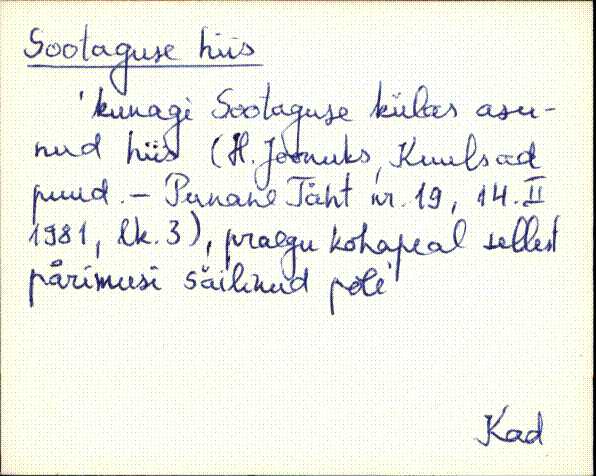 Sootaguse hiis
'kunagi Sootaguse külas asu-
nud hiis (H. Joonuks, Kuulsad
puud. – Punane Täht nr. 19, 14. II
1981, lk. 3), praegu kohapeal sellest
pärimusi säilinud pole'
Kad